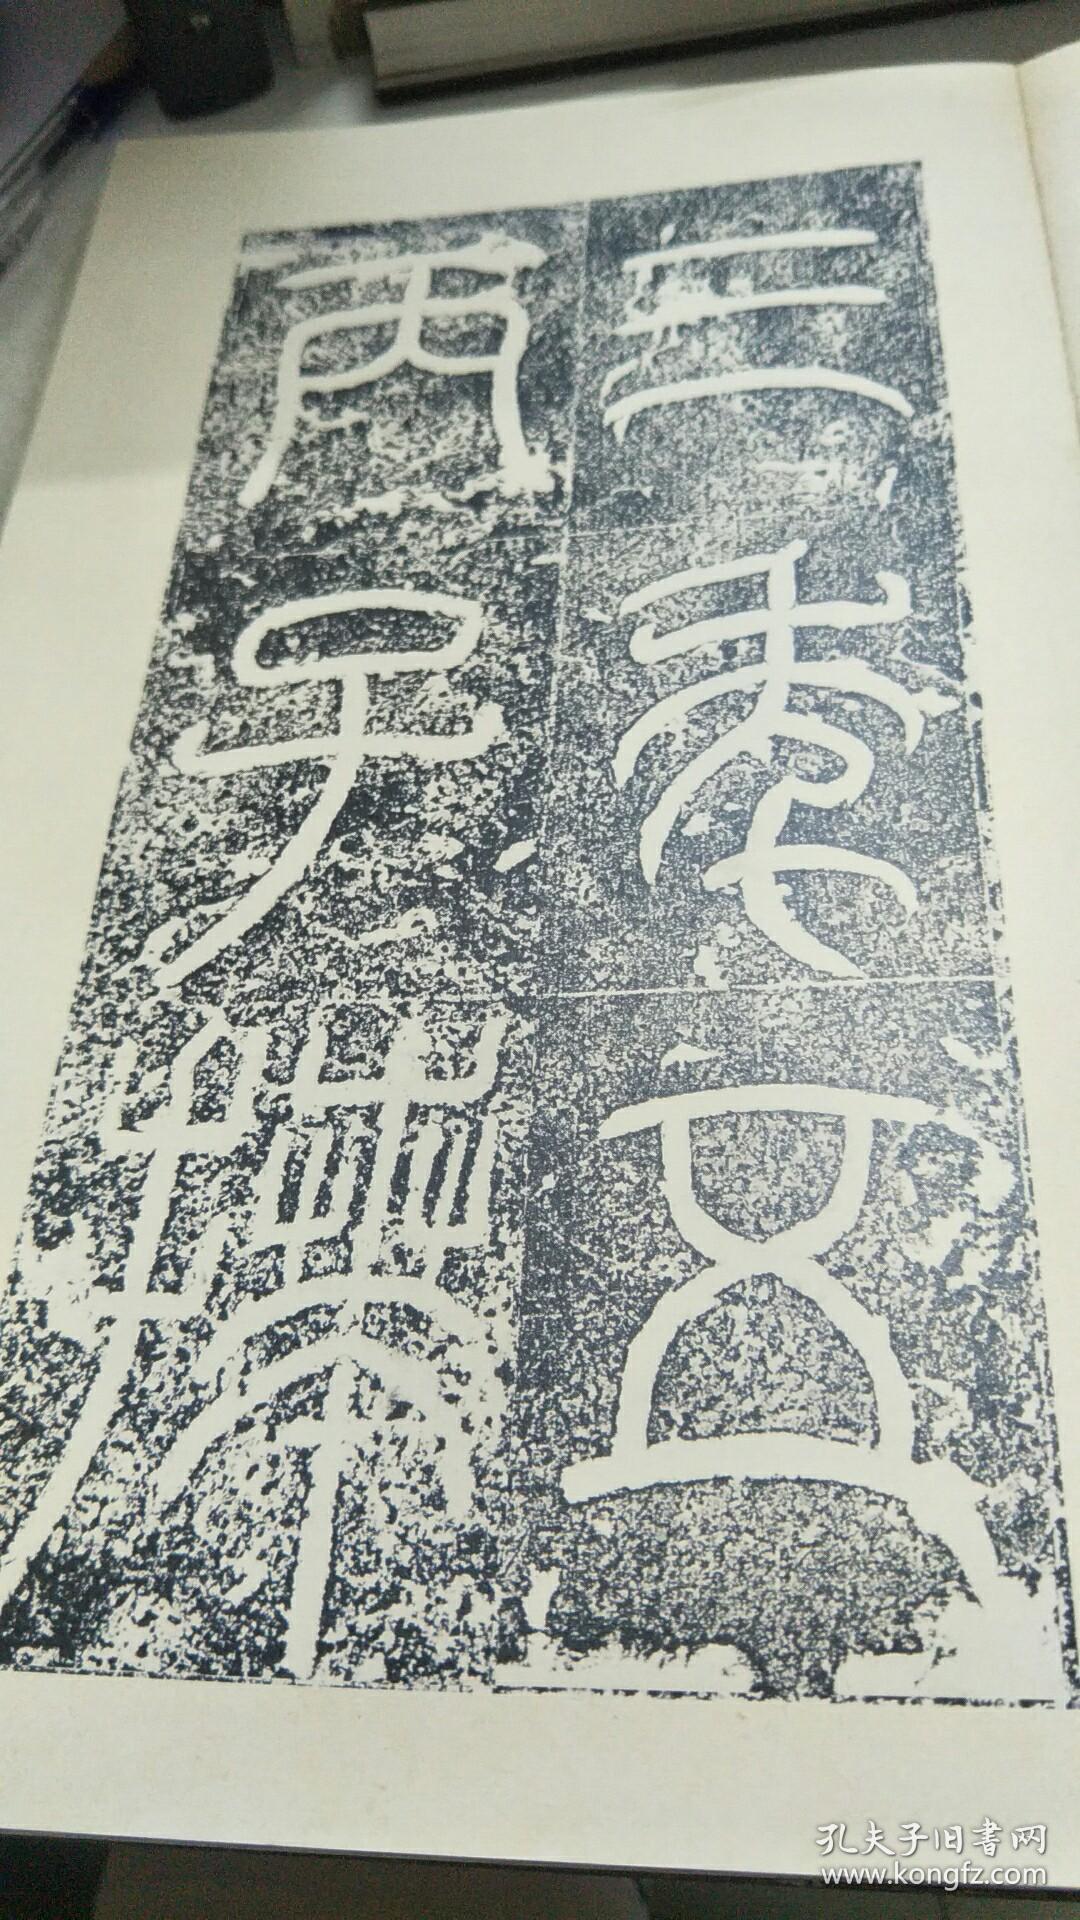 三年五
丙子拜
孔夫子旧書网
www.kongfz.com